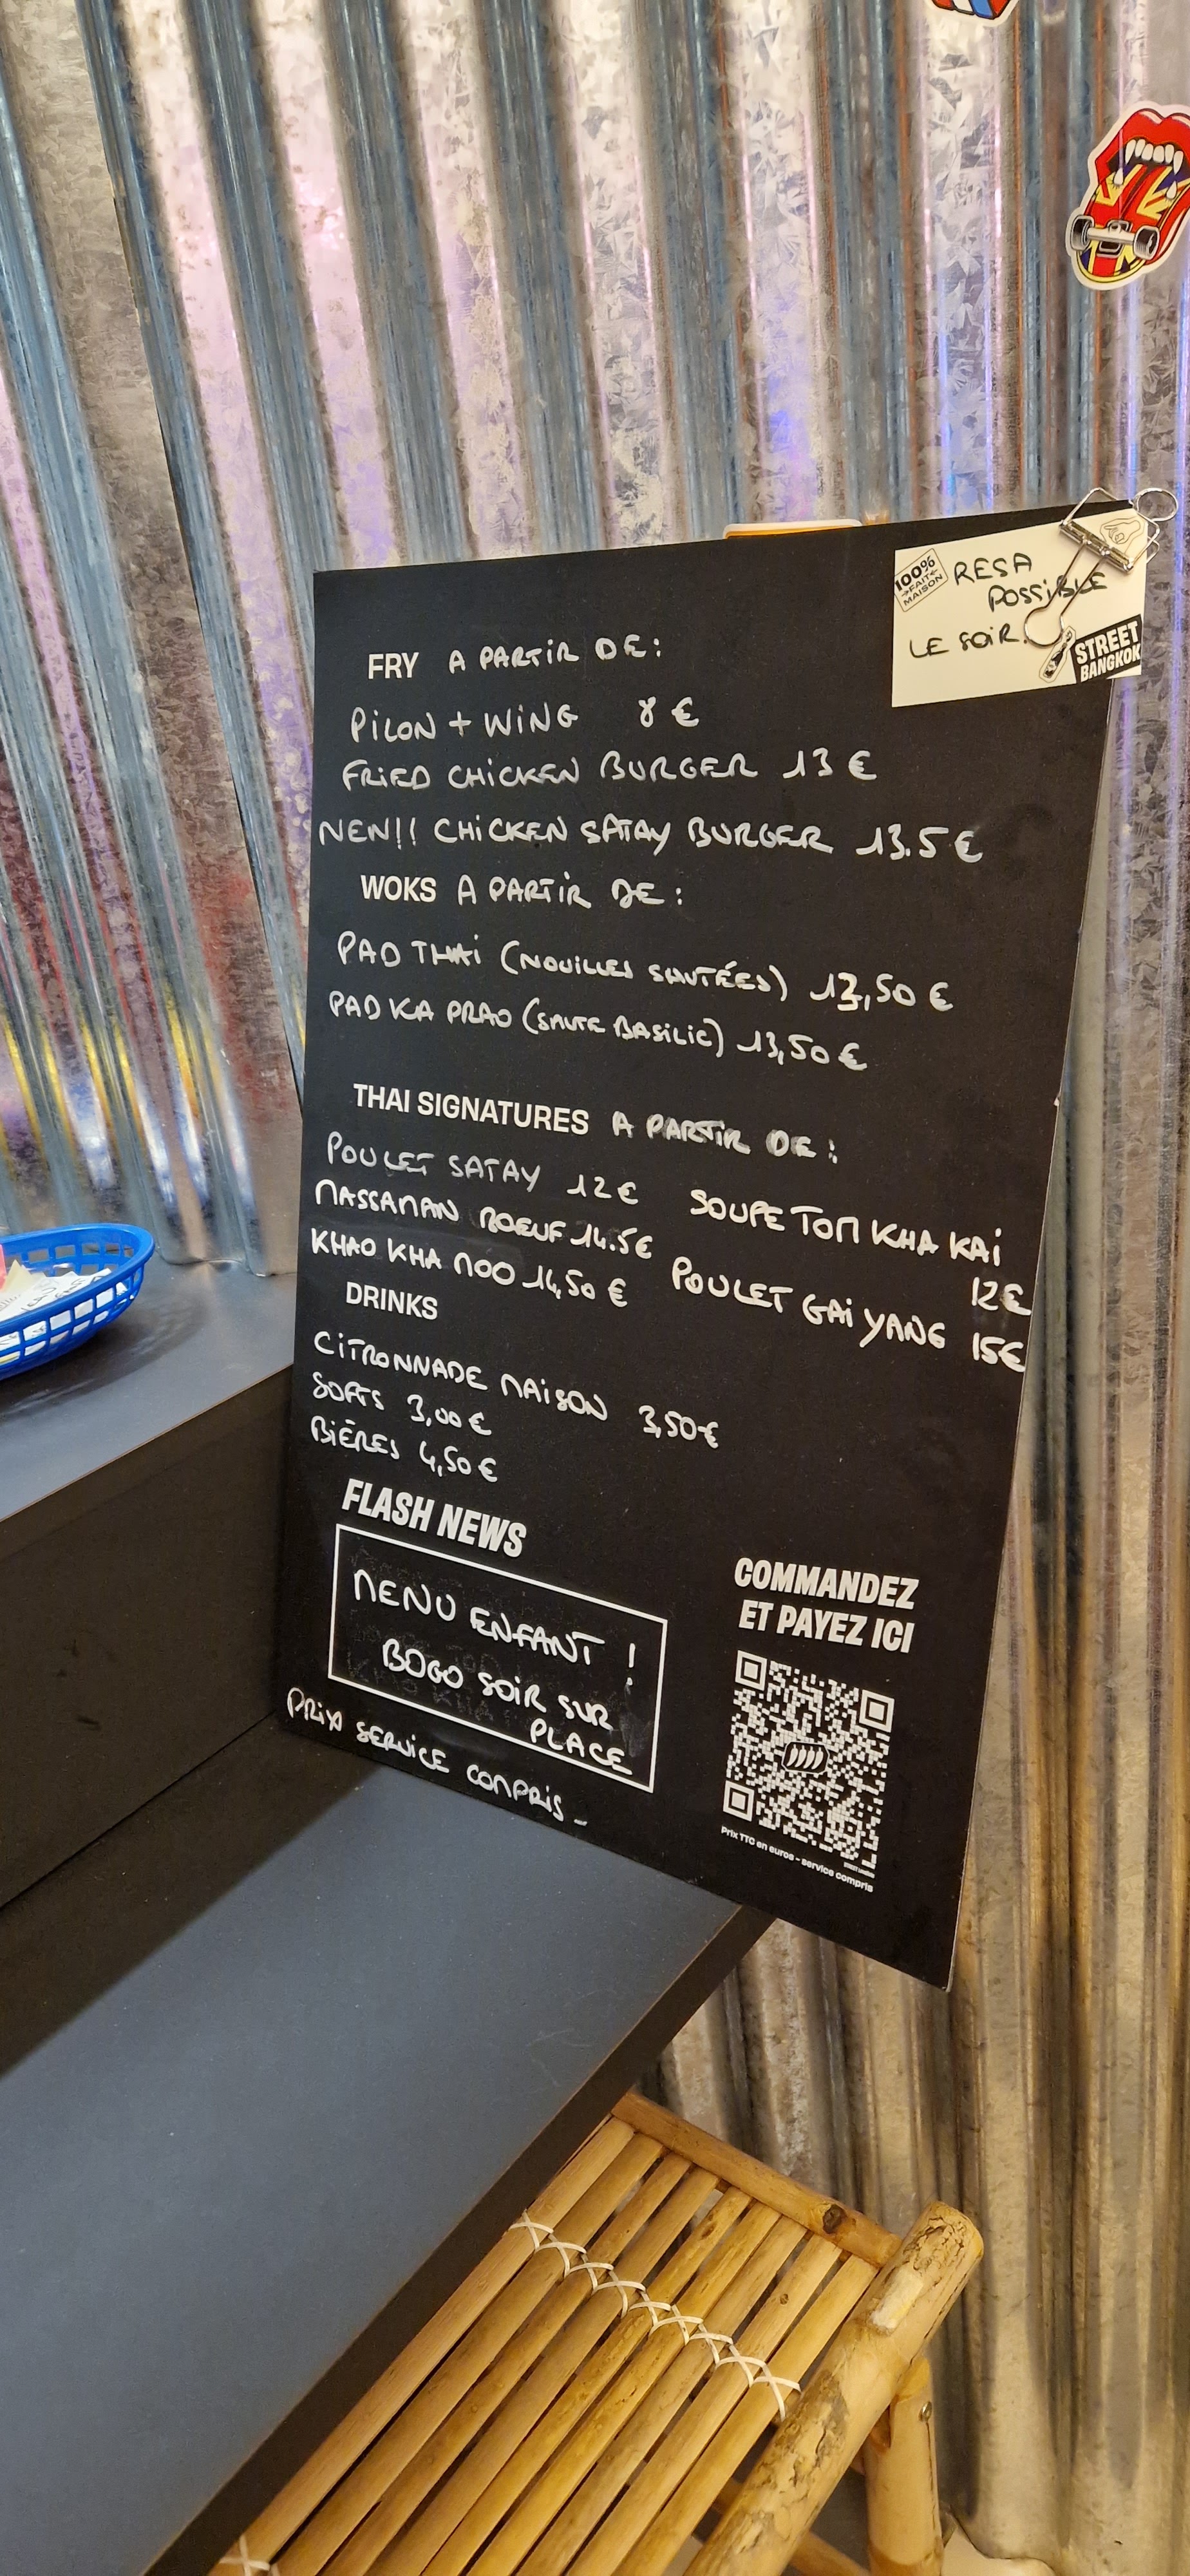 100%
FAIT
MAISON
RESA
POSSIBLE
LE SOIR
STREET
BANGKOK
FRY A PARTIR DE:
PILON + WING 8 €
FRIED CHICKEN BURGER 13 €
NEW!! CHICKEN SATAY BURGER 13.5 €
WOKS A PARTIR DE:
PAD THAI (NOUILLES SAUTÉES) 13,50 €
PAD KA PRAO (SAUTE BASILIC) 13,50 €
THAI SIGNATURES A PARTIR DE:
POULET SATAY 12 €
MASSAMAN BOEUF 14.5 €
KHAO KHA MOO 14,50 €
SOUPE TOM KHA KAI
12€
POULET GAI YANG 15€
DRINKS
CITRONNADE MAISON 3,50€
SOFTS 3,00 €
BIÈRES 4,50 €
FLASH NEWS
MENU ENFANT !
BOGO SOIR SUR
PLACE
PRIX SERVICE COMPRIS -
COMMANDEZ
ET PAYEZ ICI
Prix TTC en euros - service compris